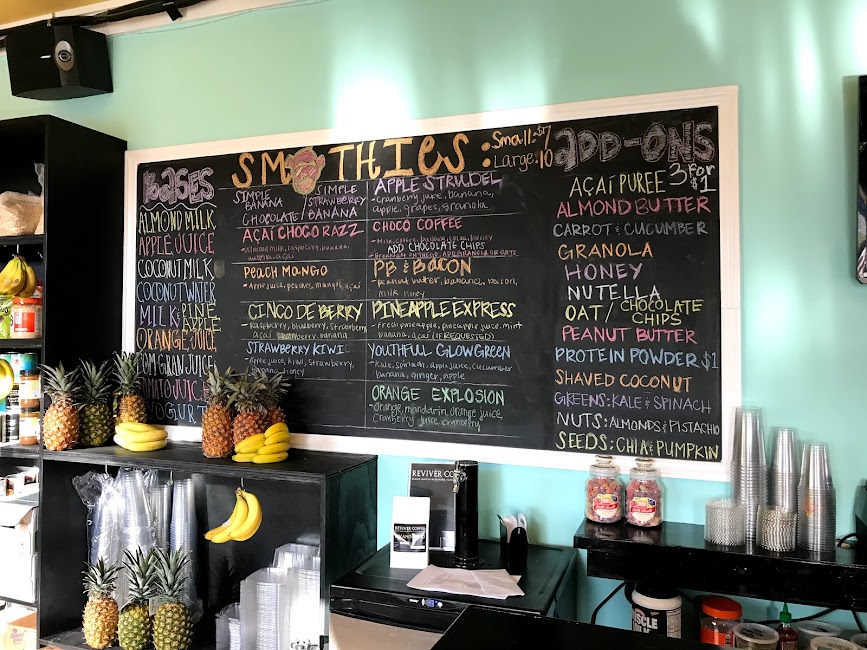 BASES
ALMOND MILK
APPLE JUICE
COCONUT MILK
COCONUT WATER
MILK PINE
APPLE
ORANGE JUICE
POM GRAN JUICE
TOMATO JUICE
YOGURT
SMOOTHIES: Small: $7
Large: 10
SIMPLE
BANANA
SIMPLE
STRAWBERRY
CHOCOLATE / BANANA
AÇAÍ CHOCO RAZZ
- almond milk, raspberry, banana,
nutella, açaí
PEACH MANGO
- Apple juice, peaches, mango, açaí
CINCO DE BERRY
- Raspberry, blueberry, strawberry
açaí, cranberry, banana
STRAWBERRY KIWI
- Apple juice, kiwi, strawberry,
banana, honey
APPLE STRUDEL
- Cranberry juice, banana,
apple, grapes, granola
CHOCO COFFEE
- Milk, coffee, banana, cocoa, honey
ADD CHOCOLATE CHIPS
PB & BACON
- peanut butter, banana, bacon,
milk, honey
PINEAPPLE EXPRESS
- Fresh pineapple, pineapple juice, mint
banana, açaí (IF REQUESTED)
YOUTHFUL GLOW GREEN
- Kale, spinach, apple juice, cucumber
banana, ginger, apple
ORANGE EXPLOSION
- Orange, mandarin, orange juice,
Cranberry juice, cranberry
ADD-ONS
3 FOR
$1
AÇAÍ PUREE
ALMOND BUTTER
CARROT & CUCUMBER
GRANOLA
HONEY
NUTELLA
OAT / CHOCOLATE
CHIPS
PEANUT BUTTER
PROTEIN POWDER $1
SHAVED COCONUT
GREENS: KALE & SPINACH
NUTS: ALMONDS & PISTACHIO
SEEDS: CHIA & PUMPKIN
REVIVER CO
REVIVER COFFEE
MUSCLE
MILK